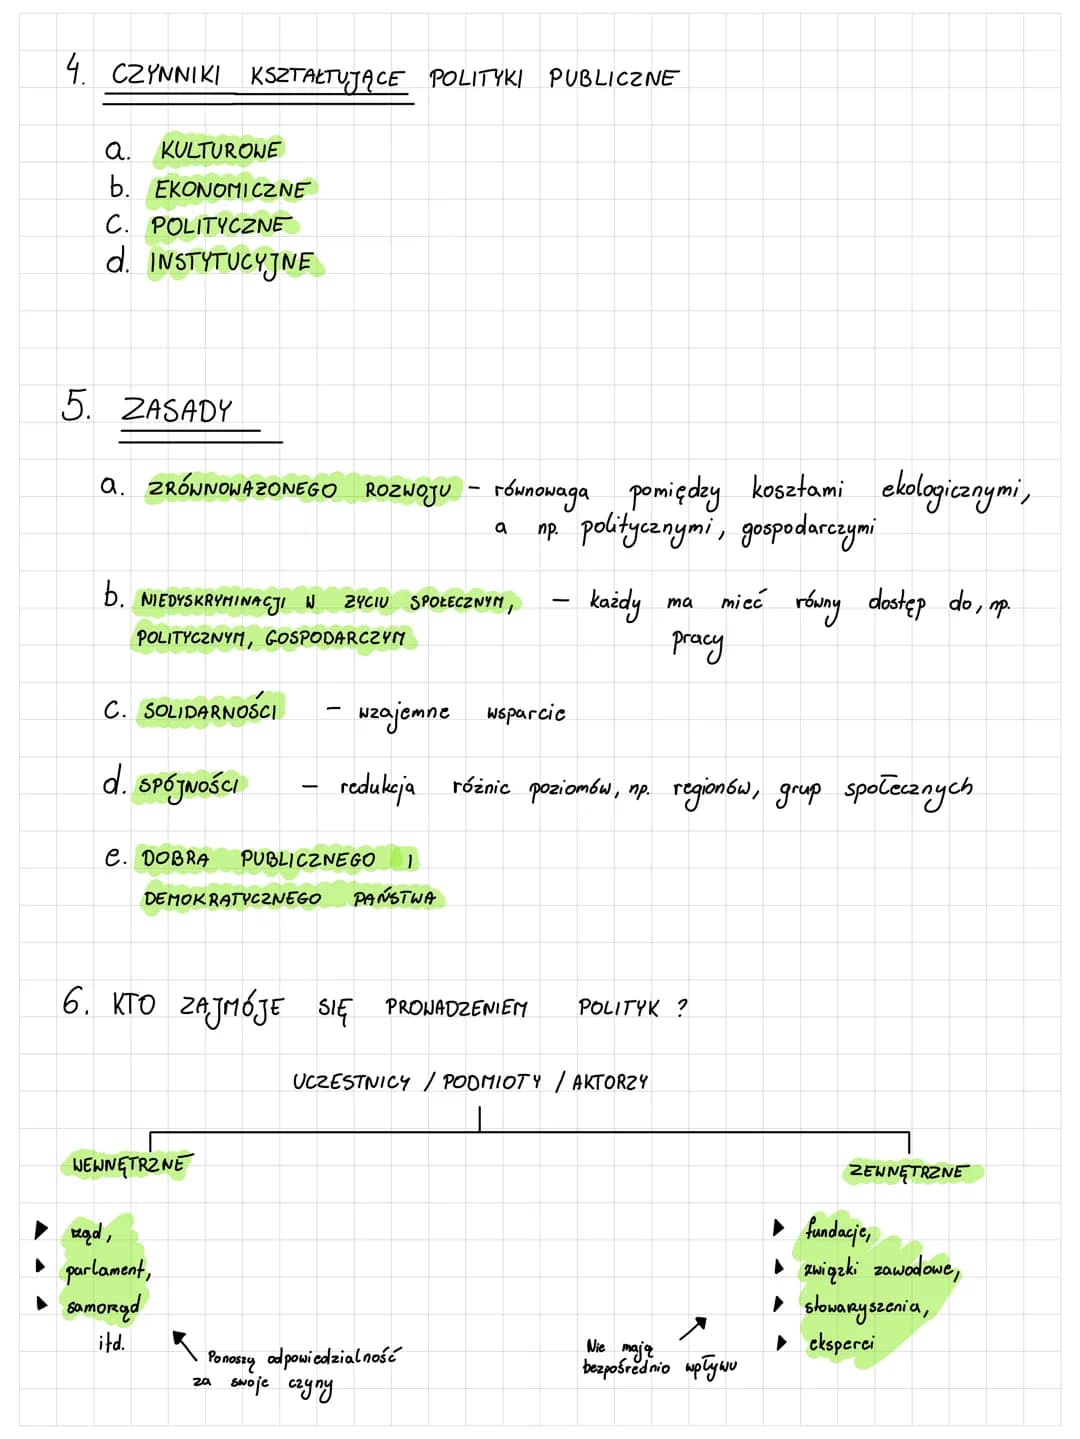 4. CZYNNIKI KSZTAŁTUJĄCE POLITYKI PUBLICZNE
a. KULTUROWE
b. EKONOMICZNE
c. POLITYCZNE
d. INSTYTUCYJNE
5. ZASADY
a. ZRÓWNOWAŻONEGO ROZWOJU – równowaga pomiędzy kosztami ekologicznymi,
a np. politycznymi, gospodarczymi
b. NIEDYSKRYMINACJI W ŻYCIU SPOŁECZNYM, – każdy ma mieć równy dostęp do, np.
POLITYCZNYM, GOSPODARCZYM pracy
c. SOLIDARNOŚCI – wzajemne wsparcie
d. SPÓJNOŚCI – redukcja różnic poziomów, np. regionów, grup społecznych
e. DOBRA PUBLICZNEGO I
DEMOKRATYCZNEGO PAŃSTWA
6. KTO ZAJMÓJE SIĘ PROWADZENIEM POLITYK ?
UCZESTNICY / PODMIOTY / AKTORZY
WEWNĘTRZNE
rząd,
parlament,
samorząd
itd.
Ponoszą odpowiedzialność
za swoje czyny
ZEWNĘTRZNE
fundacje,
związki zawodowe,
stowaryszenia,
eksperci
Nie mają
bezpośrednio wpływu